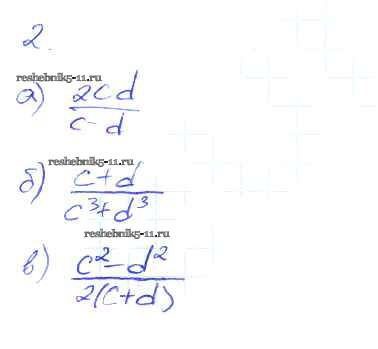 2.
reshebnik5-11.ru
а) 2cd / c-d
reshebnik5-11.ru
б) c+d / c³+d³
reshebnik5-11.ru
в) c²-d² / 2(c+d)